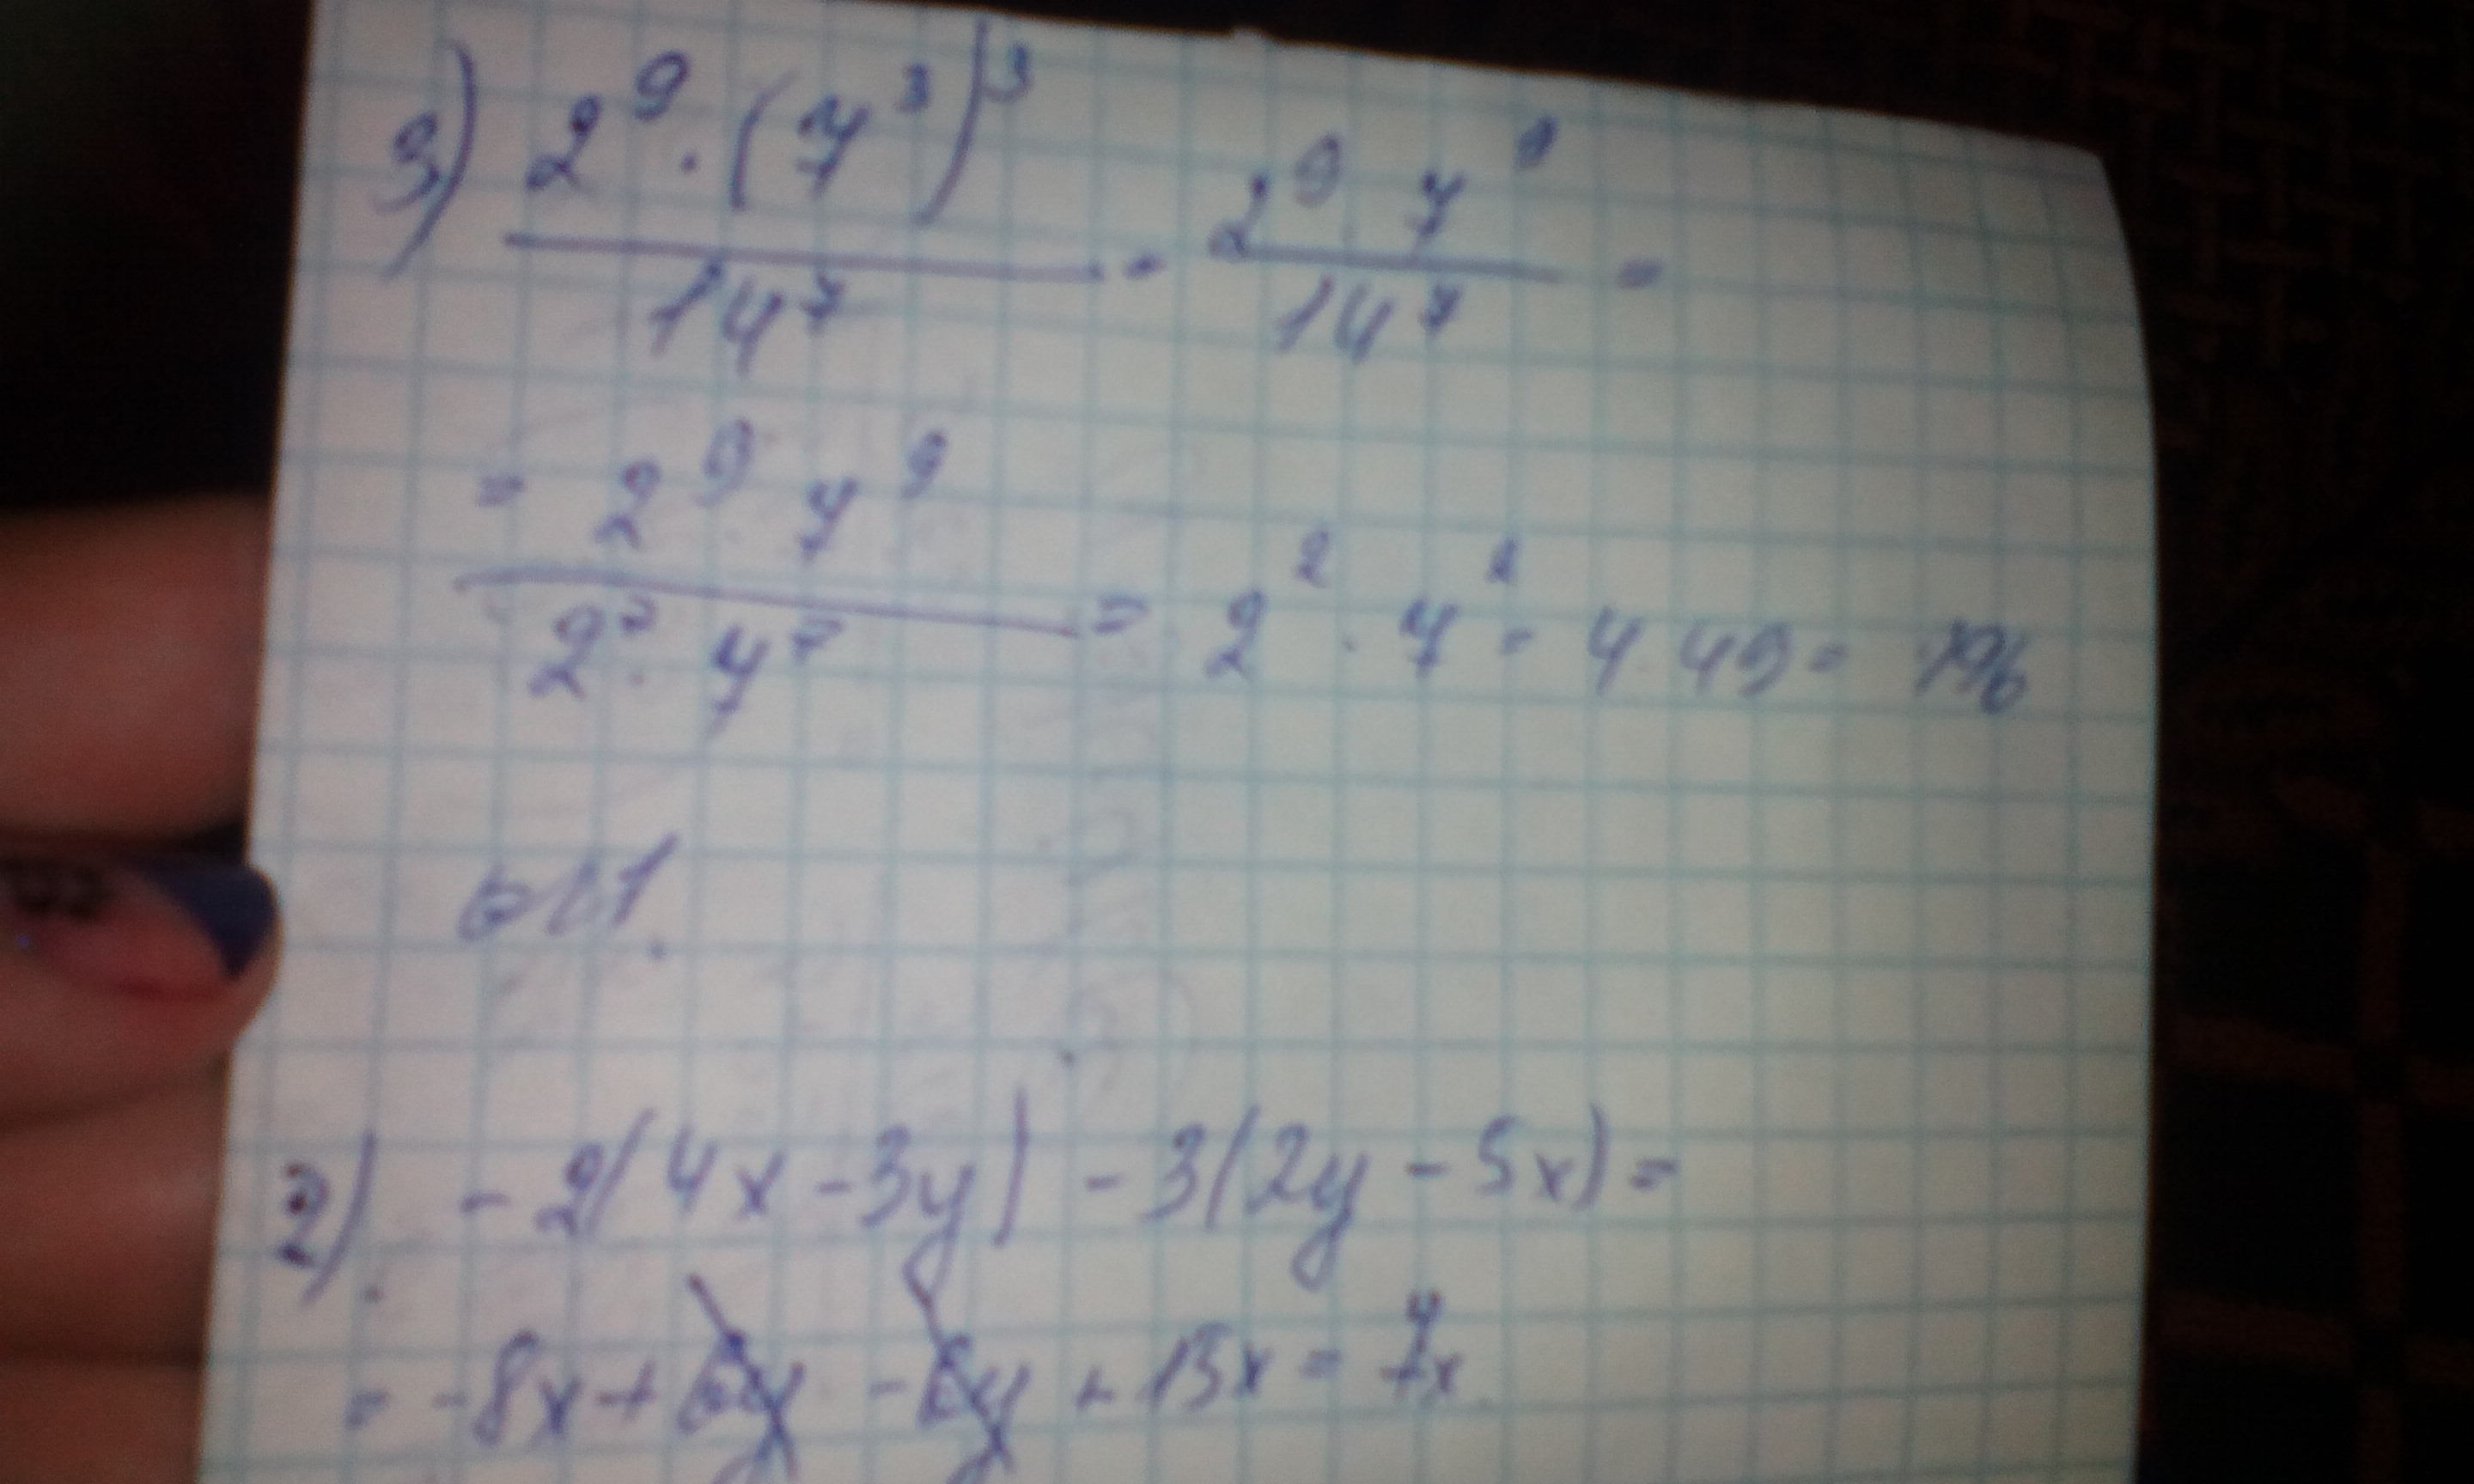 3) 2⁹ · (7³)³ / 14⁷ = 2⁹ · 7⁹ / 14⁷ =
= 2⁹ · 7⁹ / 2⁷ · 7⁷ = 2² · 7² = 4 · 49 = 196
2). - 2(4x - 3y) - 3(2y - 5x) =
= -8x + 6y - 6y + 15x = 7x